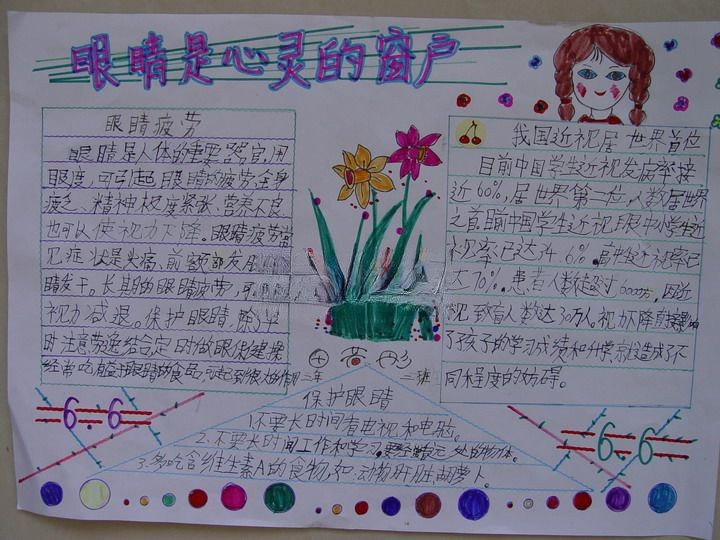 眼睛是心灵的窗户
眼睛疲劳
眼睛是人体的重要器官,用
眼过度,可引起眼睛的疲劳、全身
疲乏、精神极度紧张、营养不良
也可以使视力下降。眼睛疲劳常
见症状是头痛、前额部发
睛发干。长期的眼睛疲劳,可
视力减退。保护眼睛,除平
时注意劳逸结合定时做眼保健操
经常吃 眼睛的食品,可起到很大的作用
我国近视居世界首位
目前中国学生近视发病率接
近60%,居世界第一位,人数居世界
之首目前中国学生近视眼中小学生近
视率已达 6%。高中生近视率已
达70%。患者人数超过6000万,因近
视致盲人数达30万人。视力下降直接影响
了孩子的学习成绩和升学,就造成了不
同程度的妨碍。
二年 二班
保护眼睛
1.不要长时间看电视和电脑。
2.不要长时间工作和学习, 处的物体。
3.多吃含维生素A的食物,如:动物肝脏胡萝卜。
6·6
6·6